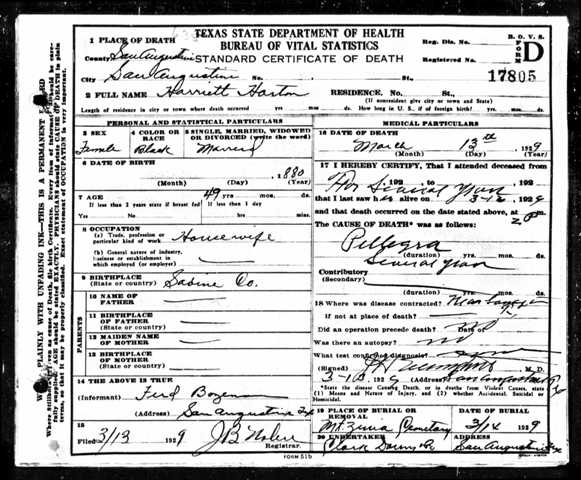 TEXAS STATE DEPARTMENT OF HEALTH
BUREAU OF VITAL STATISTICS
STANDARD CERTIFICATE OF DEATH
B. O. V. S.
FORM D
Reg. Dis. No.
Registered No.
17805
1 PLACE OF DEATH
County San Augustine
City San Augustine No. St.,
2 FULL NAME Harriett Horton RESIDENCE. No. St.,
(If nonresident give city or town and State)
Length of residence in city or town where death occurred yrs. mos. ds. How long in U. S., if of foreign birth? yrs. mos. ds.
PERSONAL AND STATISTICAL PARTICULARS
3 SEX
Female
4 COLOR OR RACE
Black
5 SINGLE, MARRIED, WIDOWED OR DIVORCED (write the word)
Married
6 DATE OF BIRTH
1880
(Month) (Day) (Year)
7 AGE 49 yrs. mos. ds.
If less than 2 years state if breast fed
If less than 1 day
Yes No hrs. min.
8 OCCUPATION
(a) Trade, profession or particular kind of work Housewife
(b) General nature of industry, business or establishment in which employed (or employer)
9 BIRTHPLACE
(State or country) Sabine Co.
PARENTS
10 NAME OF FATHER
11 BIRTHPLACE OF FATHER
(State or country)
12 MAIDEN NAME OF MOTHER
13 BIRTHPLACE OF MOTHER
(State or country)
14 THE ABOVE IS TRUE
(Informant) Ferd
(Address) San Augustine Tex
15
Filed 3/13 1929 J B
Registrar.
MEDICAL PARTICULARS
16 DATE OF DEATH
March 13th 1929
(Month) (Day) (Year)
17 I HEREBY CERTIFY, That I attended deceased from
For Several Years
that I last saw her alive on 3-12 1929
and that death occurred on the date stated above, at 2 Pm
The CAUSE OF DEATH* was as follows:
Pellegra
(duration) yrs. mos. ds.
Several Years
Contributory
(Secondary)
(duration) yrs. mos. ds.
18 Where was disease contracted?
if not at place of death?
Did an operation precede death? No Date of
Was there an autopsy? no
What test confirmed diagnosis?
(Signed) M. D.
3-13 1929 (Address) San Augustine Tex
*State the disease Causing Death, or in deaths from Violent Causes, state (1) Means and Nature of Injury, and (2) whether Accidental, Suicidal or Homicidal.
19 PLACE OF BURIAL OR REMOVAL
Cemetery
DATE OF BURIAL
3/14 1929
20 UNDERTAKER
Clark Downs
ADDRESS
San Augustine Tex
FORM 51b